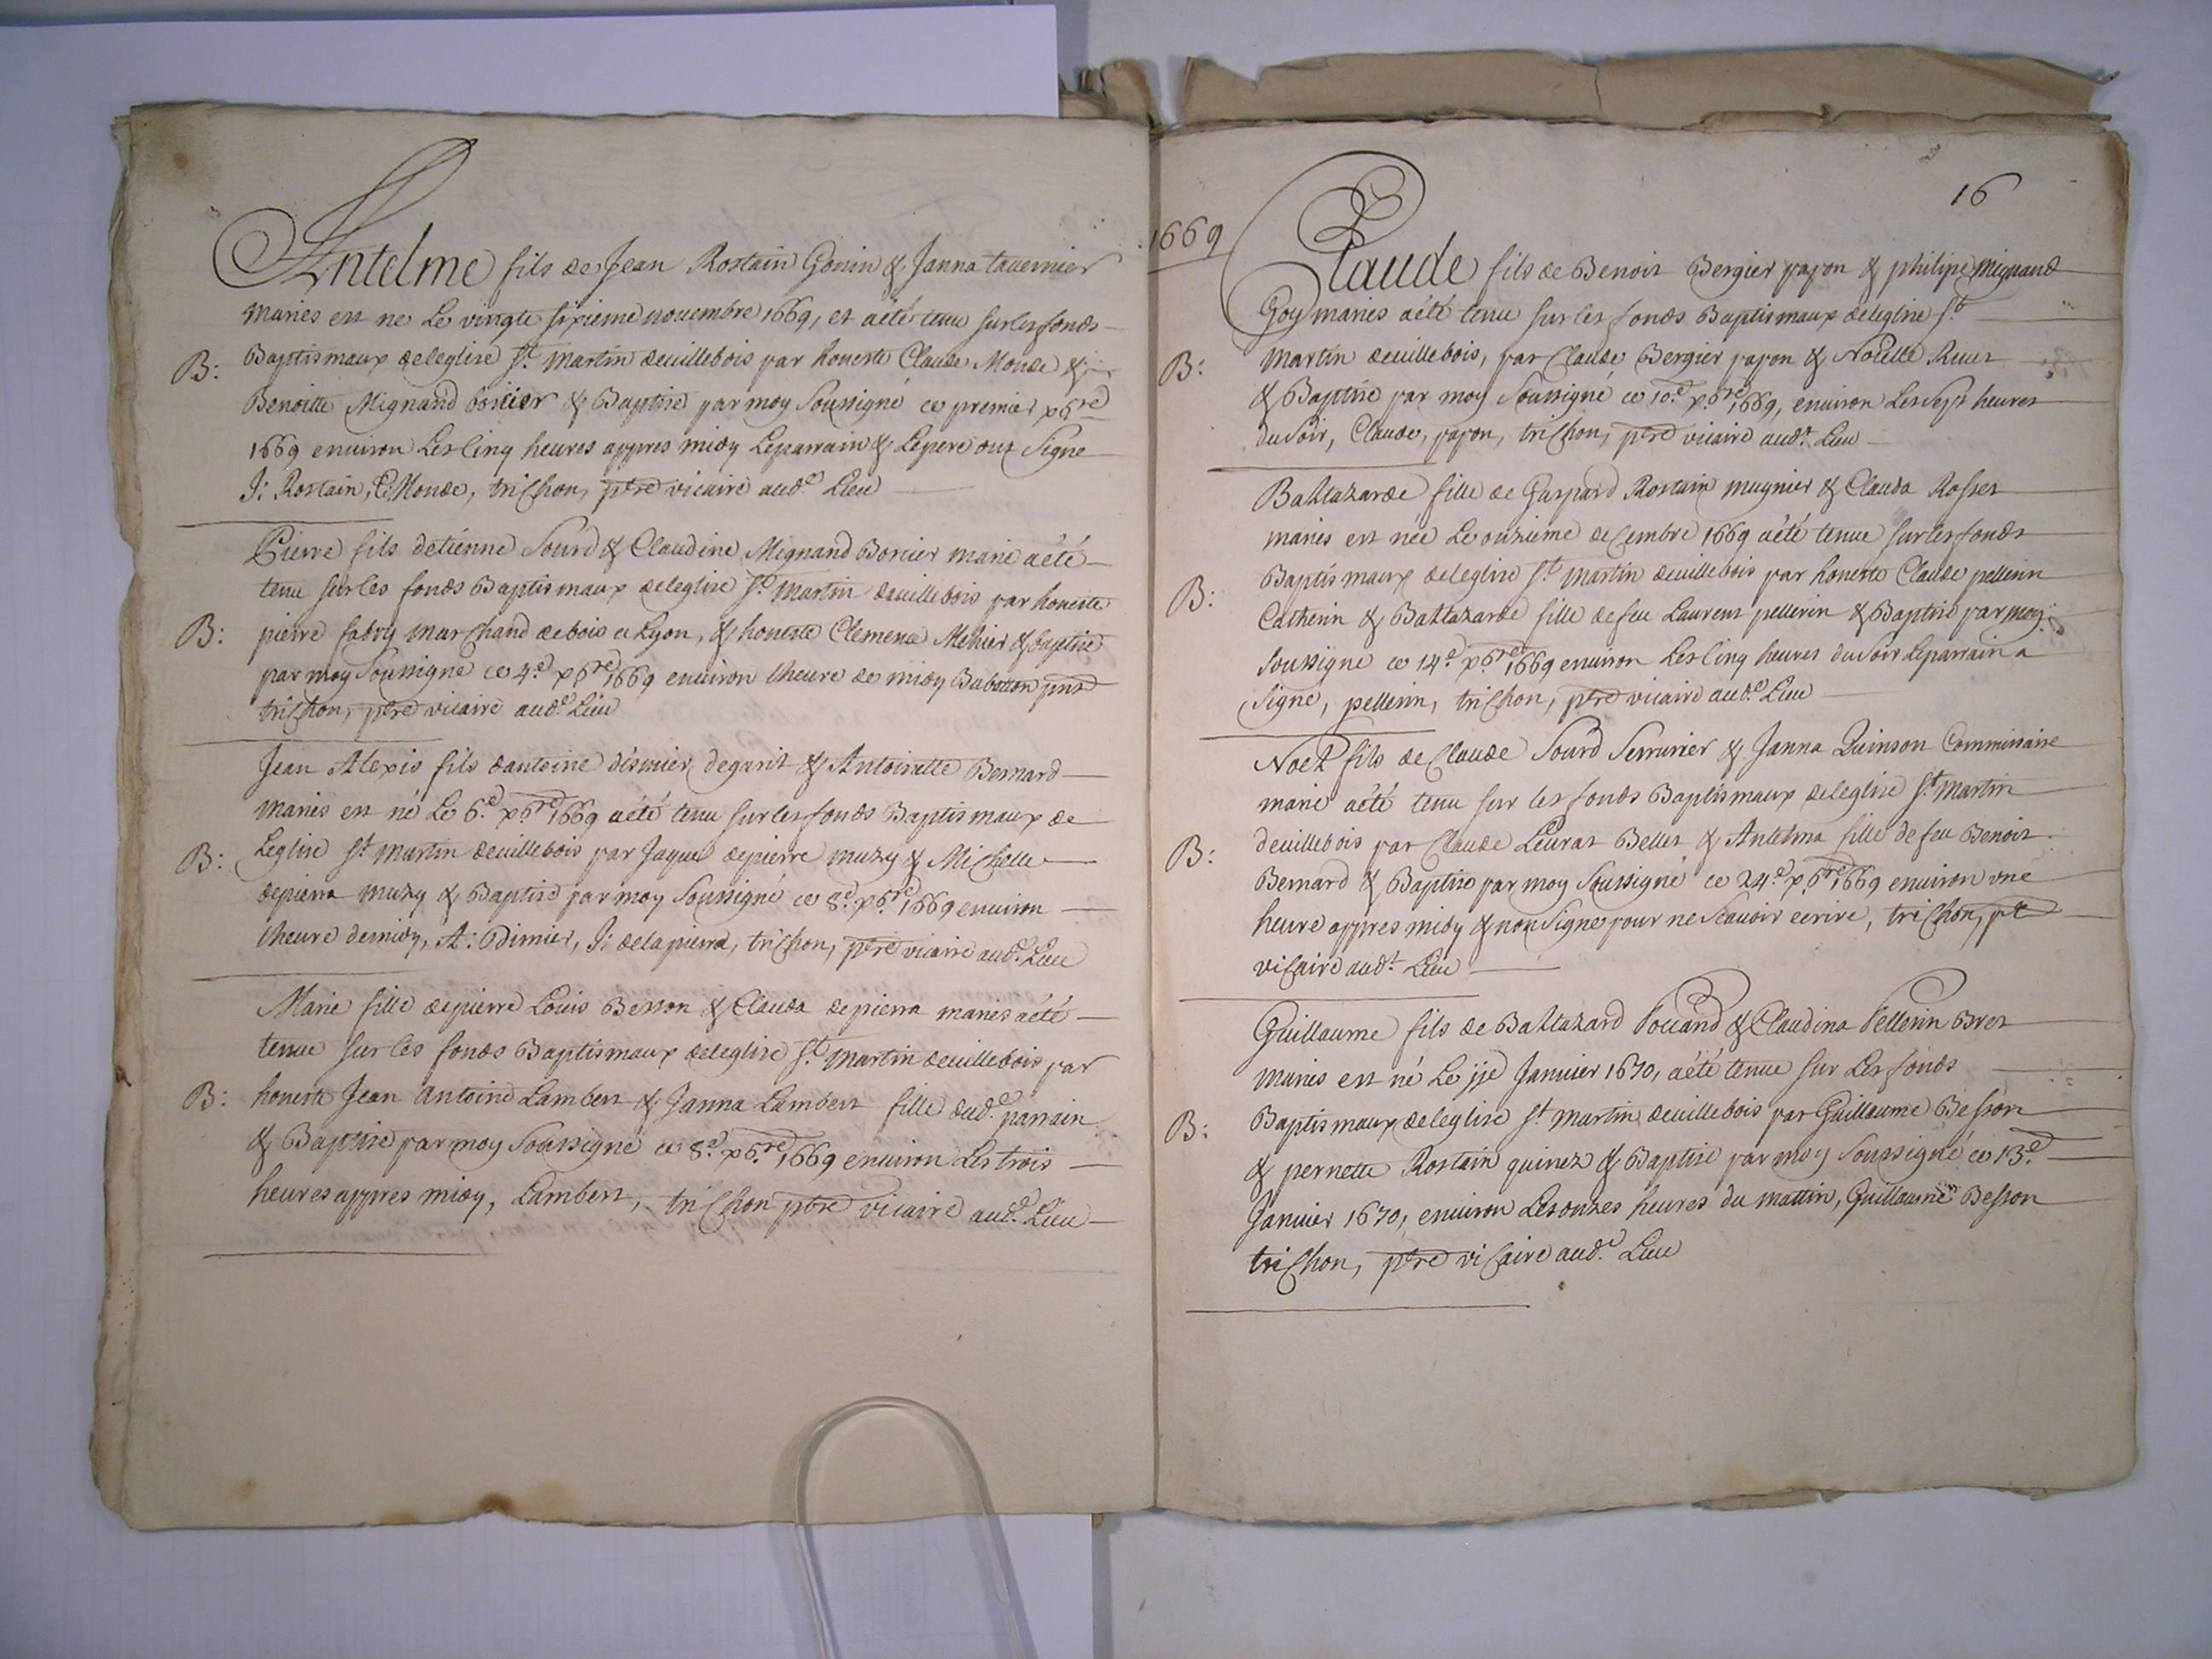 Antelme fils de Jean Rostain Gonin & Janna tavernier
maries est ne Le vingte sixieme novembre 1669, et aété tenu surlesfonds
B: Baptismaux deleglise St. Martin devillebois par honeste Claude Monde &
Benoitte Mignand & Baptisé par moy Soussigné ce premier xbre
1669 environ Les Cinq heures appres midy Leparrain & Lepere ont Signe
J: Rostain, C Monde, trichon, ptre vicaire aud.e Lieu
Pierre fils detienne Sourd & Claudine Mignand Borcier marie aété
tenu sur les fonds Baptismaux deleglise St. Martin devillebois par honeste
B: pierre fabry marchand debois a Lyon, & honeste Clemence Mehier & baptisé
par moy Soussigne ce 4.e xbre 1669 environ lheure de midy Babotton pnt
trichon, ptre vicaire aud.e Lieu
Jean Alexis fils dantoine dismier degarit & Antoinette Bernard
maries est né Le 6.e xbre 1669 aété tenu surlesfonds Baptismaux de
B: Leglise St Martin devillebois par Jaque depierre muzy & Michelle
depierra muzy & Baptisé par moy Soussigné ce 8.e xbre 1669 environ
lheure demidy, A: Dimier, J: delapierre, trichon, ptre vicaire aud.e Lieu
Marie fille depierre Louis Besson & Clauda depierra maries aété
tenue sur les fonds Baptismaux deleglise St Martin devillebois par
B: honeste Jean Antoine Lambert & Janna Lambert fille dud.e parrain
& Baptisé par moy Soussigne ce 8.e xbre 1669 environ Les trois
heures appres midy, Lambert, trichon ptre vicaire aud.e Lieu
16
1669
Claude fils de Benoit Bergier papon & philipe Mignand
Goy maries aété tenu sur les fonds Baptismaux deleglise St
B: Martin devillebois, par Claude Bergier papon & Noëlle Ruet
& Baptisé par moy Soussigné ce 10.e xbre 1669, environ Les Sept heures
du soir, Claude, papon, trichon, ptre vicaire audt. Lieu
Baltazarde fille de Gaspard Rostain mugnier & Clauda Rosset
maries est née Le onzieme decembre 1669 aété tenue surlesfonds
B: Baptismaux deleglise St. Martin devillebois par honeste Claude pellerin
Catherin & Baltazarde fille de feu Laurent pellerin & Baptisé par moy
soussigne ce 14.e xbre 1669 environ Les Cinq heures du soir Leparrain a
Signe, pellerin, trichon, ptre vicaire aud.e Lieu
Noel fils de Claude Sourd Serrurier & Janna Quinson Commissaire
marie aété tenu sur les fonds Baptismaux deleglise St. Martin
B: devillebois par Claude Leurat Bellet & Antelma fille de feu Benoit
Bernard & Baptisé par moy Soussigné ce 24.e xbre 1669 environ vne
heure appres midy & non Signe pour ne Scavoir ecrire, trichon, pt
vicaire audt. Lieu
Guillaume fils de Baltazard Pouand & Claudina Pellerin Bret
maries est né Le jje Janvier 1670, aété tenue sur Les fonds
B: Baptismaux deleglise St Martin devillebois par Guillaume Besson
& pernette Rostain quinez & Baptisé par moy Soussigné ce 13.e
Janvier 1670, environ Les onzes heures du mattin, Guillaume Besson
trichon, ptre vicaire aud.e Lieu